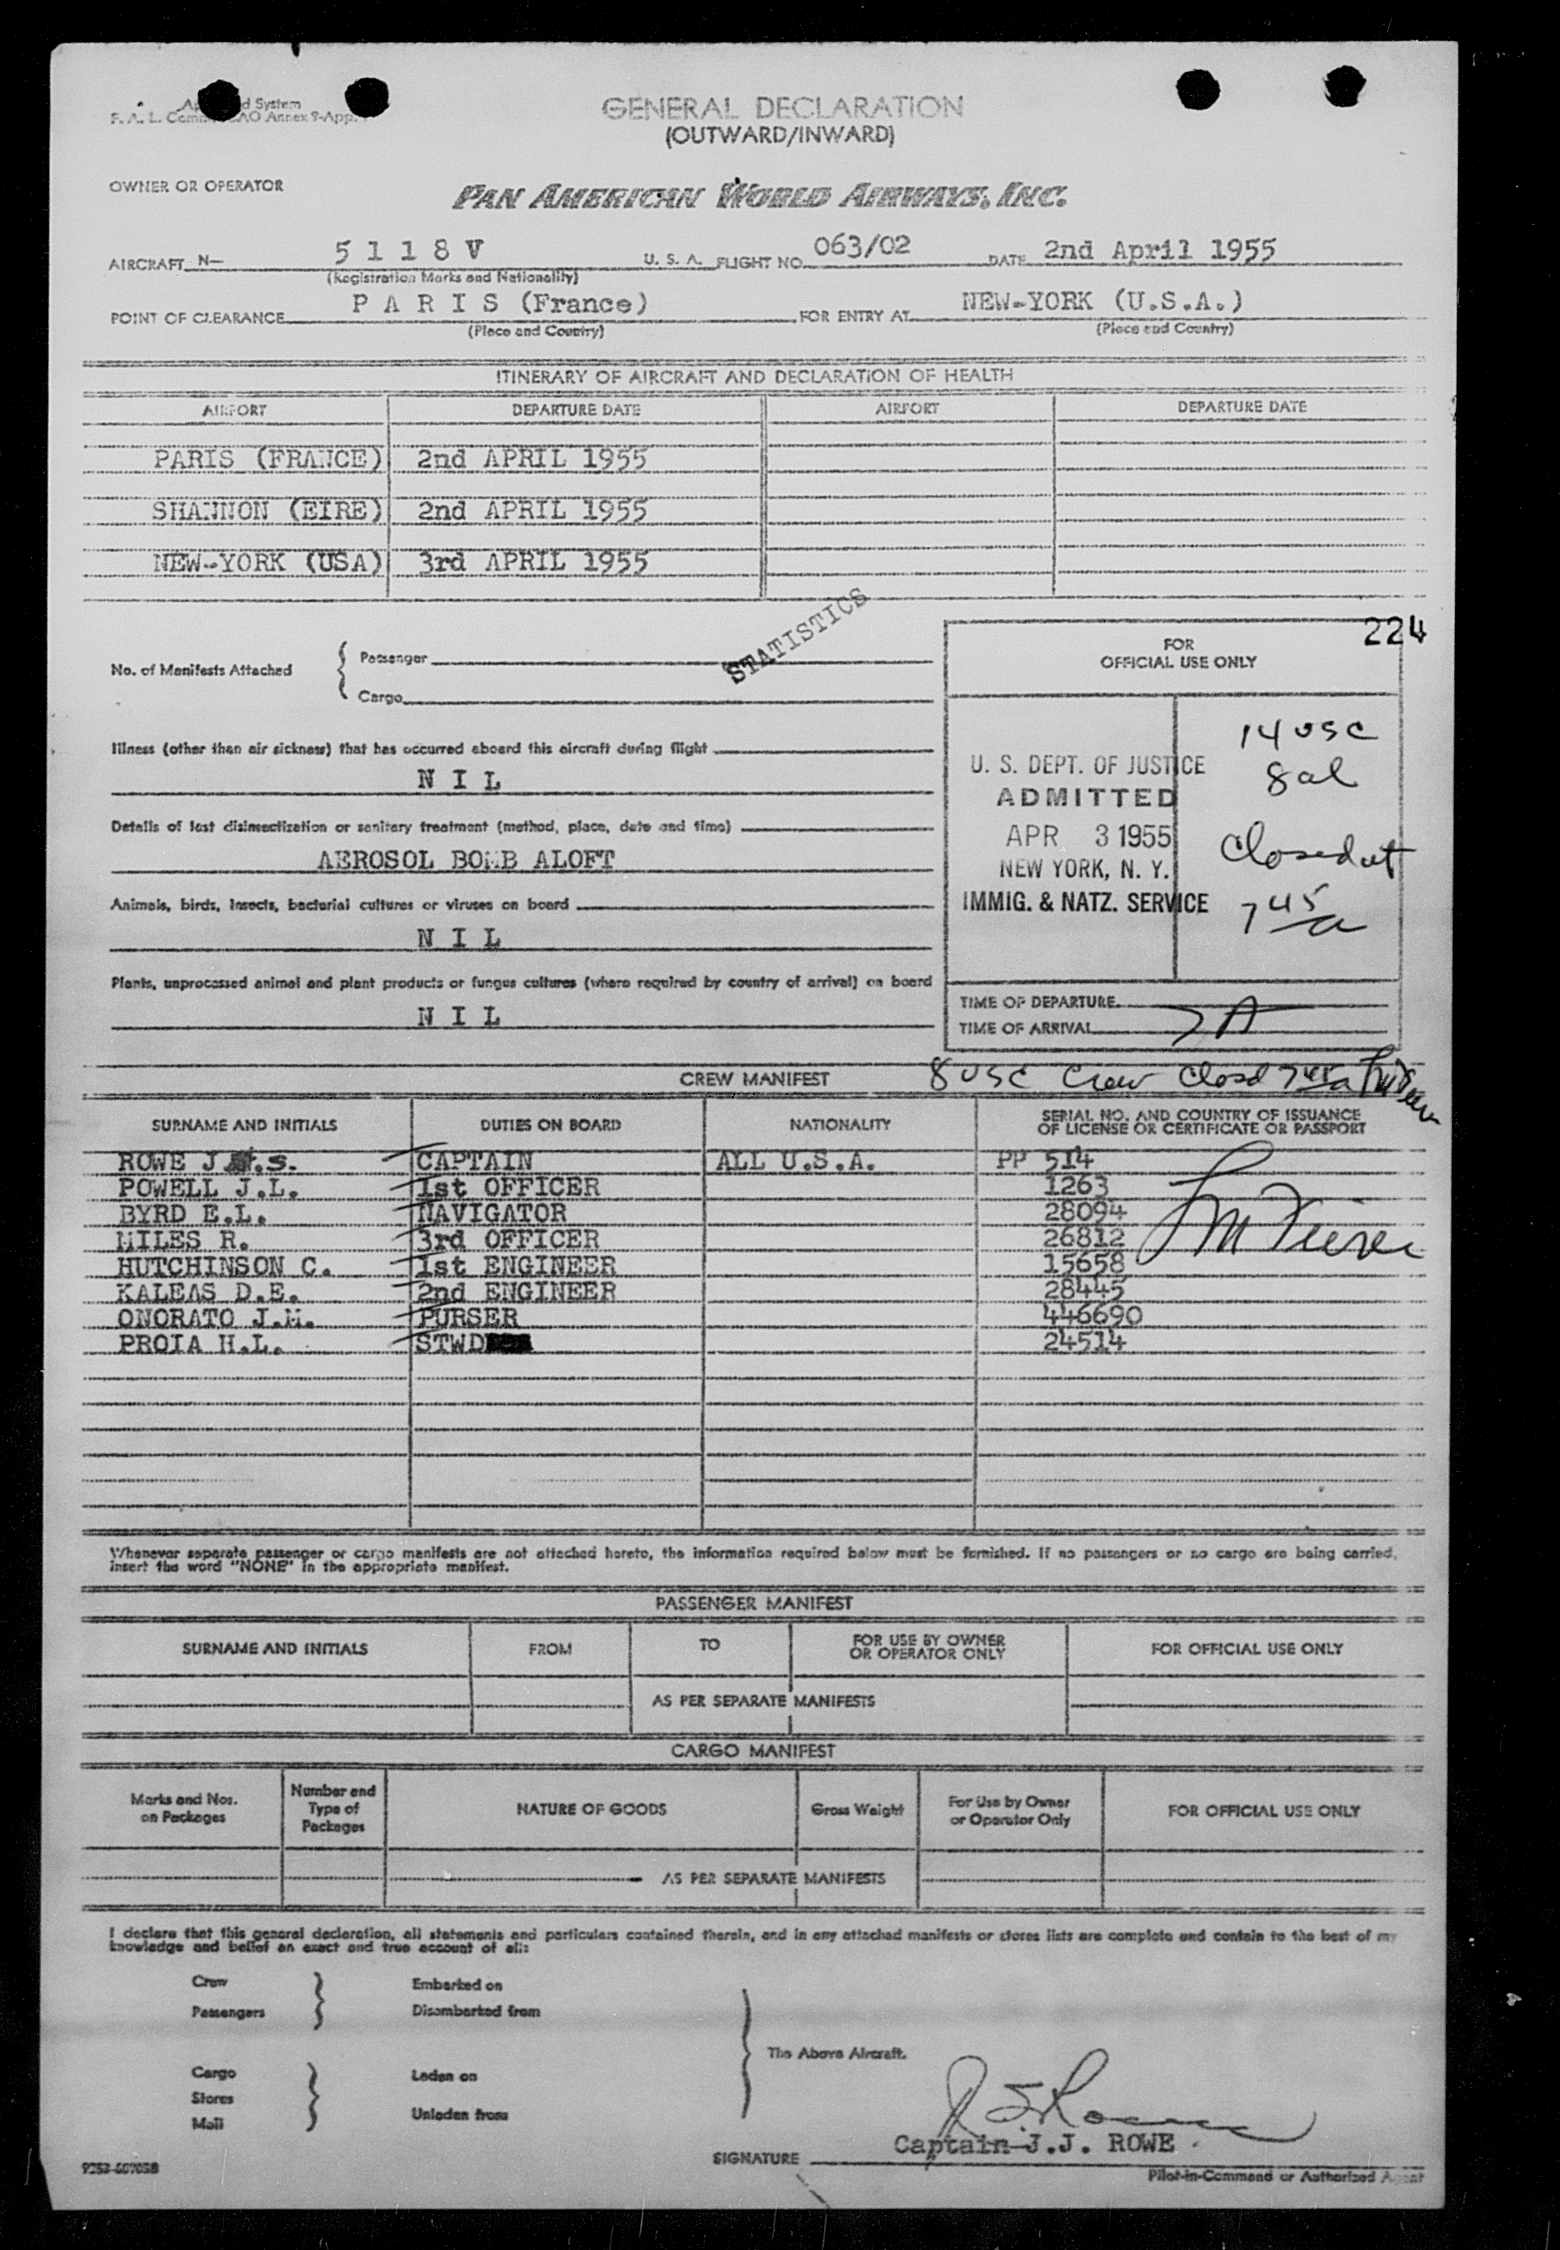 GENERAL DECLARATION
(OUTWARD/INWARD)
d System
F. A. L. Annex 9-App.
OWNER OR OPERATOR
PAN AMERICAN WORLD AIRWAYS, INC.
AIRCRAFT N- 5 1 1 8 V U. S. A. FLIGHT NO. 063/02 DATE 2nd April 1955
(Registration Marks and Nationality)
POINT OF CLEARANCE P A R I S (France) FOR ENTRY AT NEW-YORK (U.S.A.)
(Place and Country) (Place and Country)
ITINERARY OF AIRCRAFT AND DECLARATION OF HEALTH
AIRPORT DEPARTURE DATE AIRPORT DEPARTURE DATE
PARIS (FRANCE) 2nd APRIL 1955
SHANNON (EIRE) 2nd APRIL 1955
NEW-YORK (USA) 3rd APRIL 1955
STATISTICS
224
No. of Manifests Attached { Passenger
Cargo
FOR
OFFICIAL USE ONLY
Illness (other than air sickness) that has occurred aboard this aircraft during flight
N I L
Details of last disinsectization or sanitary treatment (method, place, date and time)
AEROSOL BOMB ALOFT
Animals, birds, insects, bacterial cultures or viruses on board
N I L
Plants, unprocessed animal and plant products or fungus cultures (where required by country of arrival) on board
N I L
U. S. DEPT. OF JUSTICE
ADMITTED
APR 3 1955
NEW YORK, N. Y.
IMMIG. & NATZ. SERVICE
14 USC
8 al
Closed at
7 45/a
TIME OF DEPARTURE
TIME OF ARRIVAL 7 A
CREW MANIFEST 8 USC Crew Closed 745a
SURNAME AND INITIALS DUTIES ON BOARD NATIONALITY SERIAL NO. AND COUNTRY OF ISSUANCE
OF LICENSE OR CERTIFICATE OR PASSPORT
ROWE J.S. CAPTAIN ALL U.S.A. PP 514
POWELL J.L. 1st OFFICER 1263
BYRD E.L. NAVIGATOR 28094
MILES R. 3rd OFFICER 26812
HUTCHINSON C. 1st ENGINEER 15658
KALEAS D.E. 2nd ENGINEER 28445
ONORATO J.M. PURSER 446690
PROIA H.L. STWD 24514
Whenever separate passenger or cargo manifests are not attached hereto, the information required below must be furnished. If no passengers or no cargo are being carried,
insert the word "NONE" in the appropriate manifest.
PASSENGER MANIFEST
SURNAME AND INITIALS FROM TO FOR USE BY OWNER
OR OPERATOR ONLY FOR OFFICIAL USE ONLY
AS PER SEPARATE MANIFESTS
CARGO MANIFEST
Marks and Nos.
on Packages Number and
Type of
Packages NATURE OF GOODS Gross Weight For Use by Owner
or Operator Only FOR OFFICIAL USE ONLY
AS PER SEPARATE MANIFESTS
I declare that this general declaration, all statements and particulars contained therein, and in any attached manifests or stores lists are complete and contain to the best of my
knowledge and belief an exact and true account of all:
Crew Embarked on
Passengers Disembarked from
The Above Aircraft.
Cargo Laden on
Stores
Mail Unladen from
J S Rowe
Captain J.J. ROWE
SIGNATURE
Pilot-in-Command or Authorized Agent